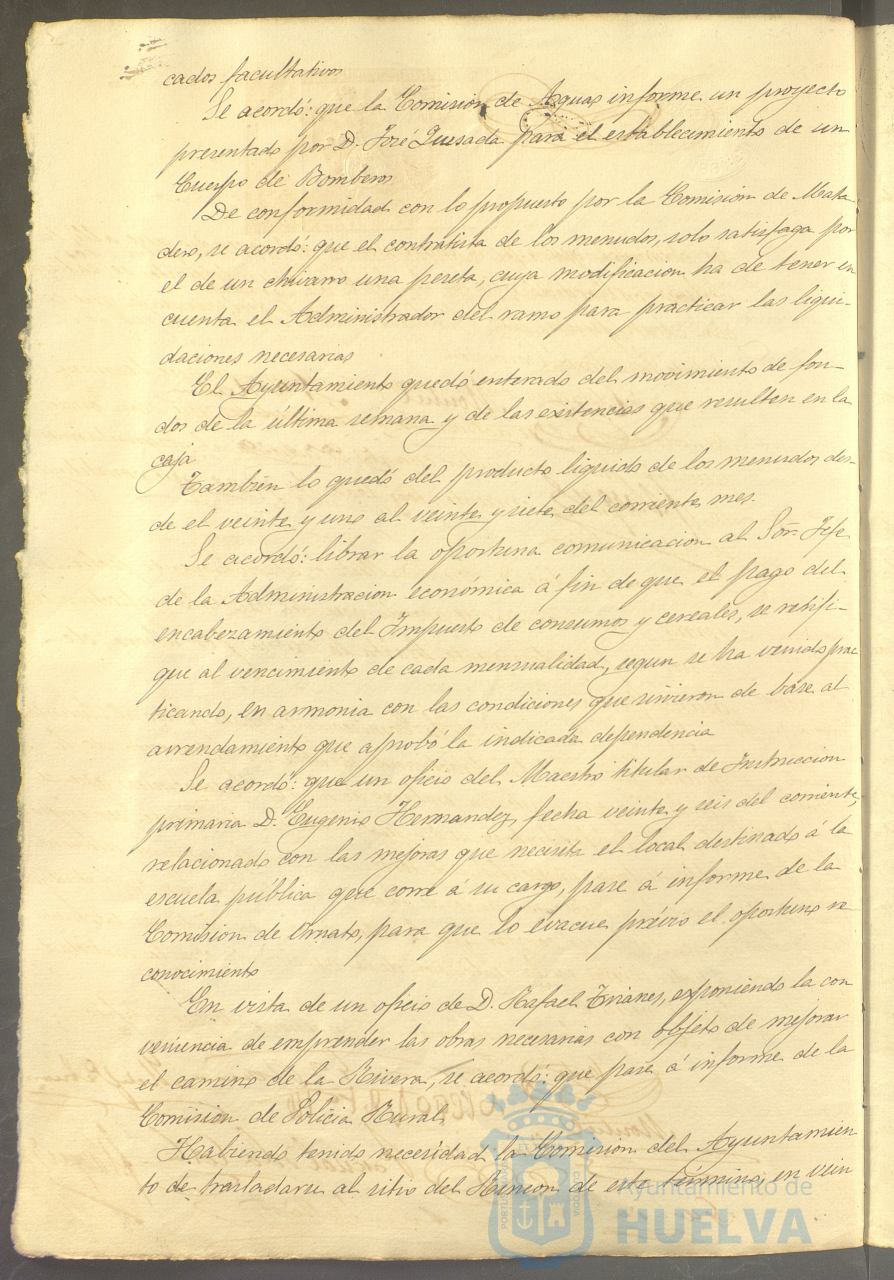 cados facultativos
Se acordó: que la Comision de Aguas informe un proyecto
presentado por D. José Quesada para el establecimiento de un
Cuerpo de Bomberos
De conformidad con lo propuesto por la Comision de Mata
dero, se acordó: que el contratista de los menudos, solo satisfaga por
el de un chivarro una peseta, cuya modificacion ha de tener en
cuenta el Administrador del ramo para practicar las liqui-
daciones necesarias
El Ayuntamiento quedó enterado del movimiento de fon-
dos de la última semana y de las existencias que resulten en la
caja
Tambien lo quedó del producto líquido de los menudos des-
de el veinte y uno al veinte y siete del corriente mes.
Se acordó: librar la oportuna comunicacion al Sor. Jefe
de la Administracion económica á fin de que el pago del
encabezamiento del Impuesto de consumos y cereales, se verifi-
que al vencimiento de cada mensualidad, segun se ha venido prac
ticando, en armonia con las condiciones que sirvieron de base al
arrendamiento que aprobó la indicada dependencia
Se acordó: que un oficio del Maestro titular de Instruccion
primaria D. Eugenio Hernandez, fecha veinte y seis del corriente,
relacionado con las mejoras que necesita el local destinado á la
escuela pública que corre á su cargo, pase á informe de la
Comision de Ornato, para que lo evacue prévio el oportuno re
conocimiento
En vista de un oficio de D. Rafael exponiendo la con
veniencia de emprender las obras necesarias con objeto de mejorar
el camino de la Rivera, se acordó: que pase á informe de la
Comision de Policia Rural
Habiendo tenido necesidad la Comision del Ayuntamien
to de trasladarse al sitio del Rincon de este término, en vein
Ayuntamiento de
HUELVA